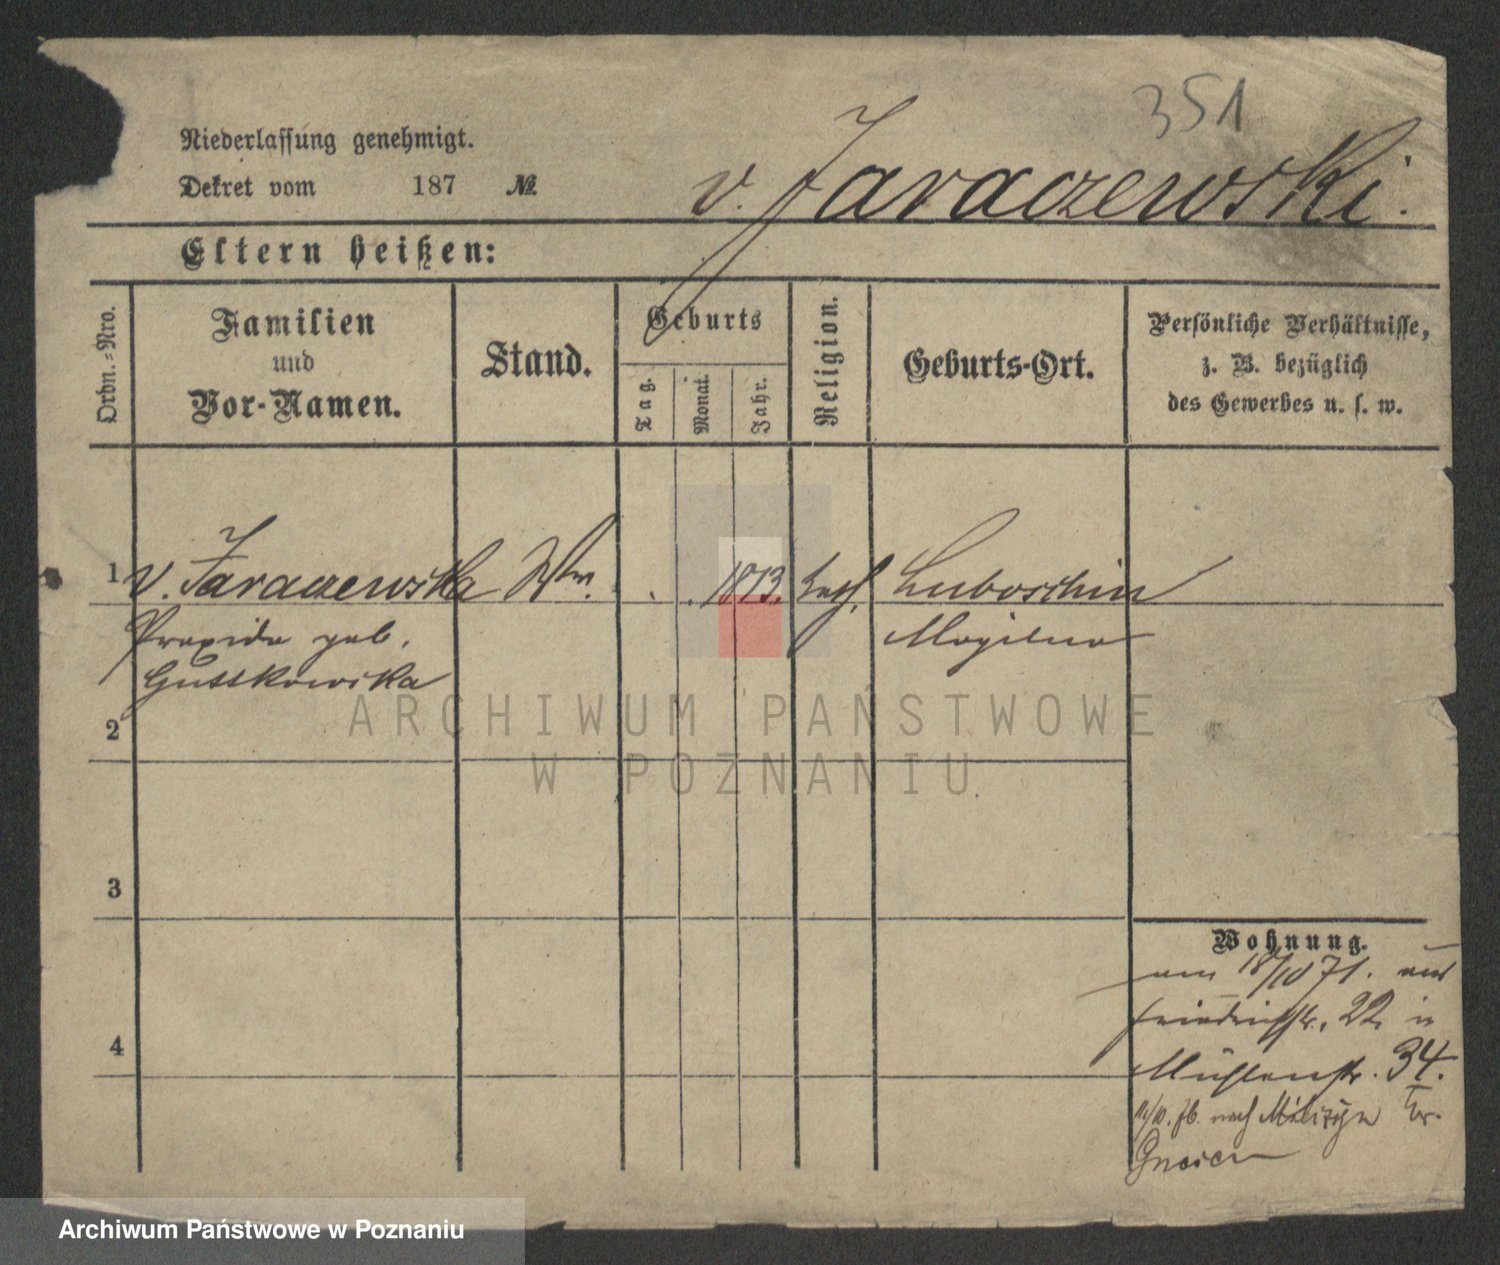 351
Niederlassung genehmigt.
Dekret vom 187 №
v. Jaraczewski.
Eltern heißen:
Ordn.-Nro.
Familien
und
Vor-Namen.
Stand.
Geburts
Tag.
Monat.
Jahr.
Religion.
Geburts-Ort.
Persönliche Verhältnisse,
z. B. bezüglich
des Gewerbes u. s. w.
1 v. Jaraczewska Ww. . . 1813. kath. Luboschin
Praxida geb. Mogilno
Gutskowska
2
3
4
Wohnung.
am 18/10 71. aus
Friedrichstr. 22 in
Mühlenstr. 34.
11/10. 76. nach
Gnesen
ARCHIWUM PAŃSTWOWE
W POZNANIU
Archiwum Państwowe w Poznaniu